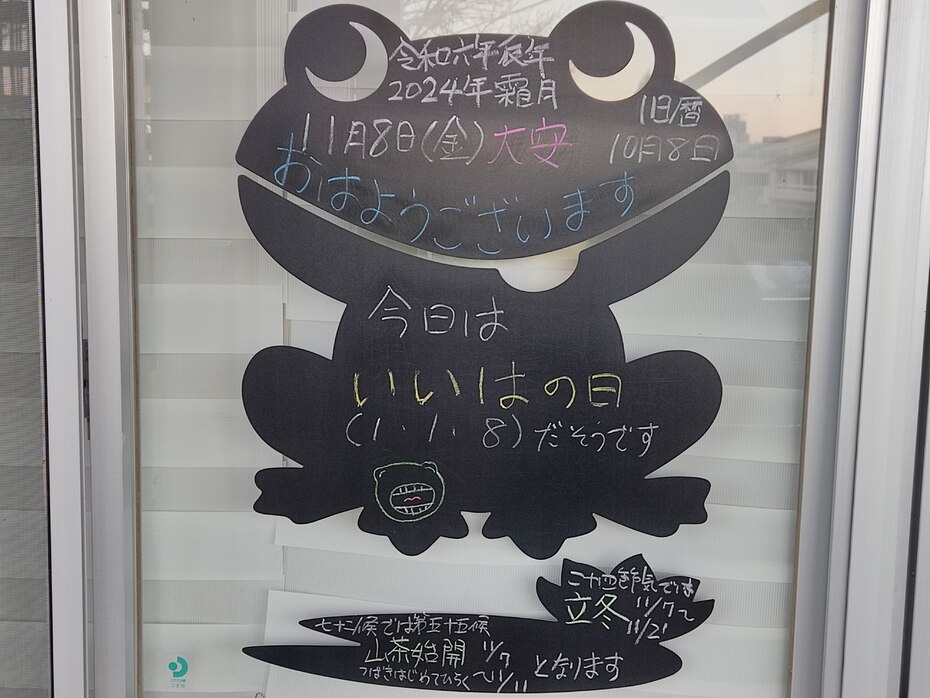 令和六年辰年
2024年霜月
11月8日(金)大安
旧暦
10月8日
おはようございます
今日は
いいはの日
(1.1.8)だそうです
二十四節気では
立冬 11/7〜
11/21
七十二候では第五十五候
山茶始開 11/7
つばきはじめてひらく 〜11/11 となります